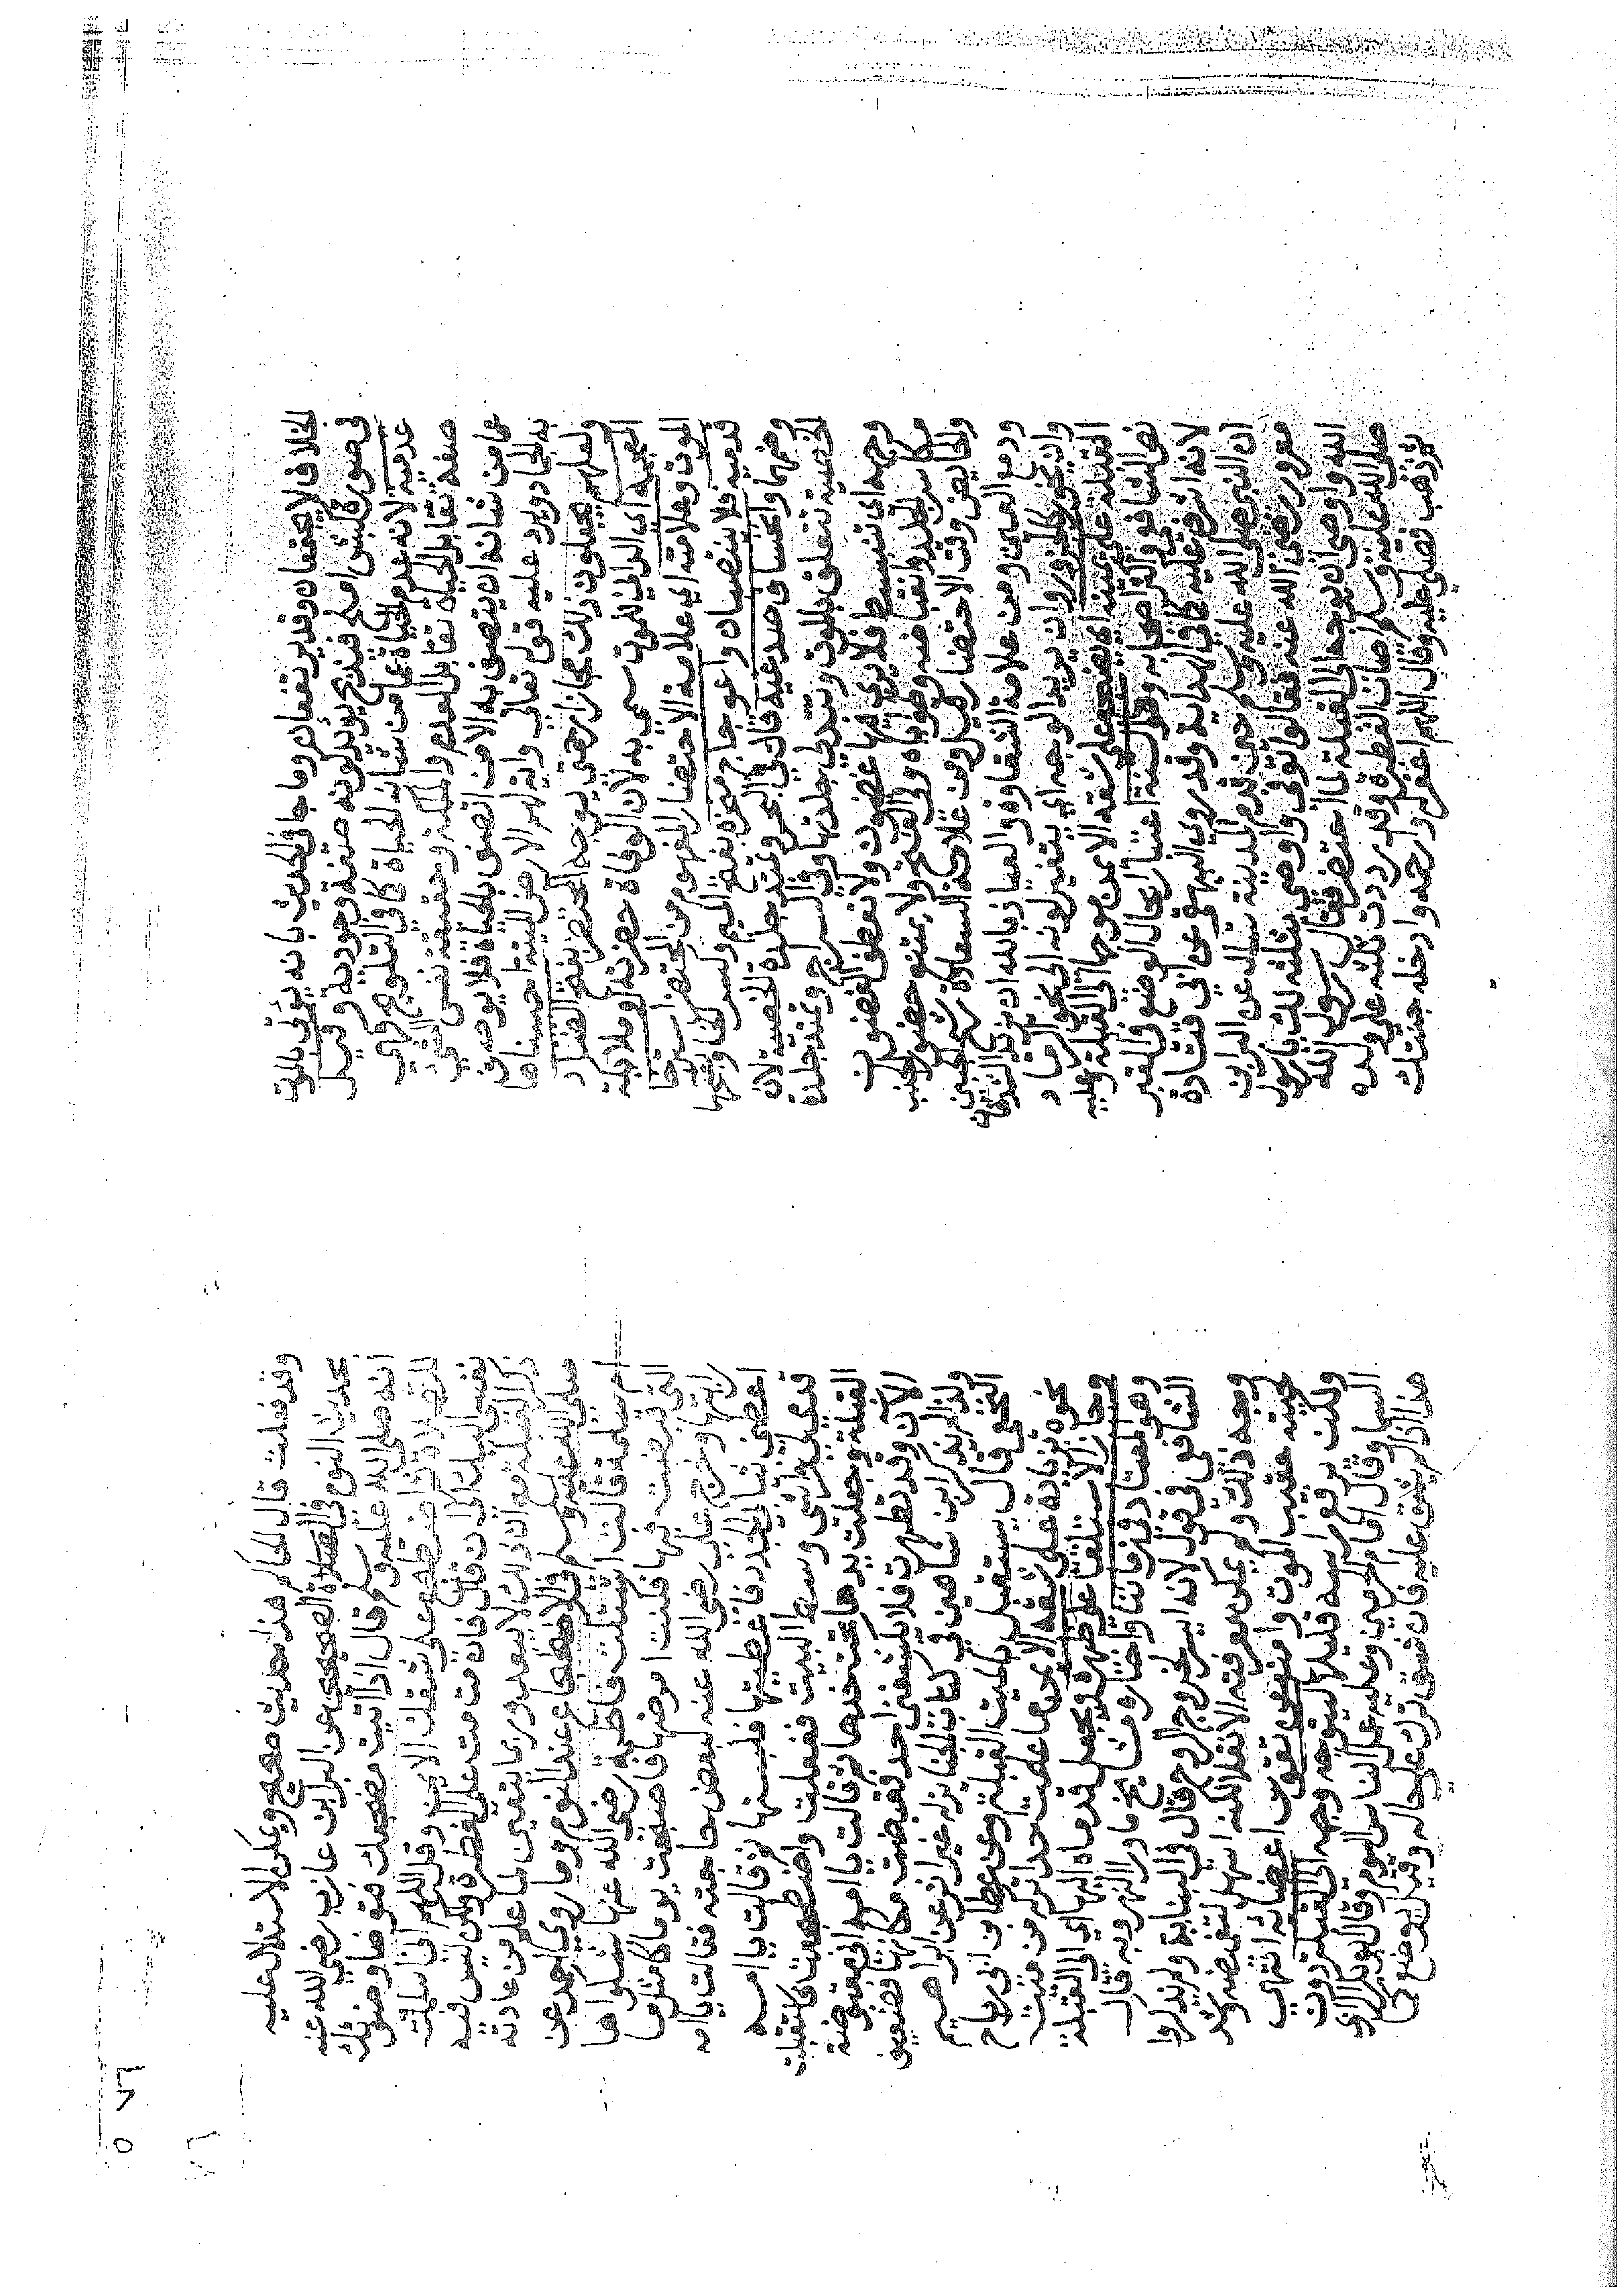 الخلاف لا يجتمعان وقد يرتفعان وما جا في الحديث بانه يؤتى بالموت
في صورة كبش املح فيذبح يؤيد كونه صفة وجودية وقيل
عدمية لانه عدم الحياة عما من شانه الحياة كما في التلويح فهي
صفة تقابل الحياة تقابل العدم والملكة وحقيقته نفس
عما من شانه ان يتصف به الا من اتصف بالحياة فلا يوصف
به الجماد ويرد عليه قوله تعالى واية لهم الارض الميتة احييناها
ولعلهم يجعلون ذلك مجازا حتى يوجه المحتضر بفتح الضاد
المعجمة اي الداني للموت سمي به لان الوفاة حضرته او ملايكة
الموت وعلامته اي علامة الاحتضار المفهوم من المحتضر استرخا
قدميه فلا ينتصبان واعوجاج منخره بفتح الميم وكسر الخا وفتحها
وضمها وانخساف صدغيه قال في البحر وتمتد جلدة الخصية لان
الخصية تتعلق بالموت وتتدلى جلدتها وفي السراج وتمتد جلدة
وجهه اي تنبسط فلا يرى فيها غضون ولا تعطف الغضون
مكاسر الجلد وانقباضه وطواياه وفي الفتح ولا يمتنع حضور الجنب
والحايض وقت الاحتضار قيل ومن علامة السعادة رشح الجبين
ودمع العين ومن علامة الشقاوة والعياذ بالله ان يزبد الشدقان
وان يخور وان يربد الوجه اي يتغير لونه الى نحو الرماد
القبلة على يمينه اي يضجع على شقه الايمن موجها الى القبلة وعليه
نص الشافعي واكثر اصحابه وهو السنة اعتبارا بحال الوضع في القبر
لانه اشرف عليه كما في الهداية وقد روى البيهقي عن ابي قتادة
ان النبي صلى الله عليه وسلم حين قدم المدينة سال عن البرا بن
معرور رضي الله عنه فقالوا توفي واوصى بثلثه لك يا رسول
الله واوصى ان يوجه الى القبلة لما احتضر فقال رسول الله
صلى الله عليه وسلم اصاب الفطرة وقد رددت ثلثه على ولده
ثم ذهب فصلى عليه وقال اللهم اغفر له وارحمه وادخله جنتك
وقد فعلت قال الحاكم هذا حديث صحيح ويمكن الاستدلال عليه
بحديث النوم في الصحيحين عن البرا بن عازب رضي الله عنه
انه صلى الله عليه وسلم قال اذا اتيت مضجعك فتوضا وضوءك
للصلاة ثم اضطجع على شقك الايمن وقل اللهم اني اسلمت
نفسي اليك الى ان قال فان مت مت على الفطرة ولكن ليس فيه
ذكر القبلة مع ان ذلك لا يبعد وربما يتعين لما علم من عادته
صلى الله عليه وسلم في الاضطجاع عند النوم وما روى احمد عن
ام سلمى قالت اشتكت فاطمة رضي الله عنها شكواها
التي قبضت فيها فكنت امرضها فاصبحت يوما كامثل ما
رايتها وخرج علي رضي الله عنه لبعض حاجته فقالت يا امه
اعطني ثيابي الجدد فاعطيتها فلبستها ثم قالت يا امه
قدمي لي فراشي وسط البيت ففعلت واضطجعت واستقبلت
القبلة وجعلت يدها تحت خدها ثم قالت يا امه اني مقبوضة
الآن وقد تطهرت فلا يكشفني احد فقبضت مكانها فضعيف
ولذا لم يذكر ابن شاهين في كتاب الجنايز له غير اثر عن ابراهيم
النخعي قال يستقبل بالميت القبلة وعن عطا بن ابي رباح
نحوه بزيادة على شقه الايمن ما علمت احدا تركه من ميت
وجاز الاستلقا على ظهره ويجعل قدماه اليها اي الى القبلة
وهو المعتاد في زماننا واختاره مشايخ ما ورا النهر وبه قال
الشافعي في قول لانه ايسر لخروج الروح قال في البناية ولم يذكروا
وجه ذلك ولم يمكن معرفته الا نقلا لكنه اسهل لتغميضه وشد
لحييه عقيب الموت وامنع من تقوس اعضائه انتهى
ولكن يرفع راسه قليلا ليتوجه وجهه الى القبلة دون
السما وقال امام الحرمين وعليه عمل الناس اليوم وقال ابو بكر الرازي
هذا اذا لم يشق عليه فان شق ترك على حاله وقيل يوضع كما